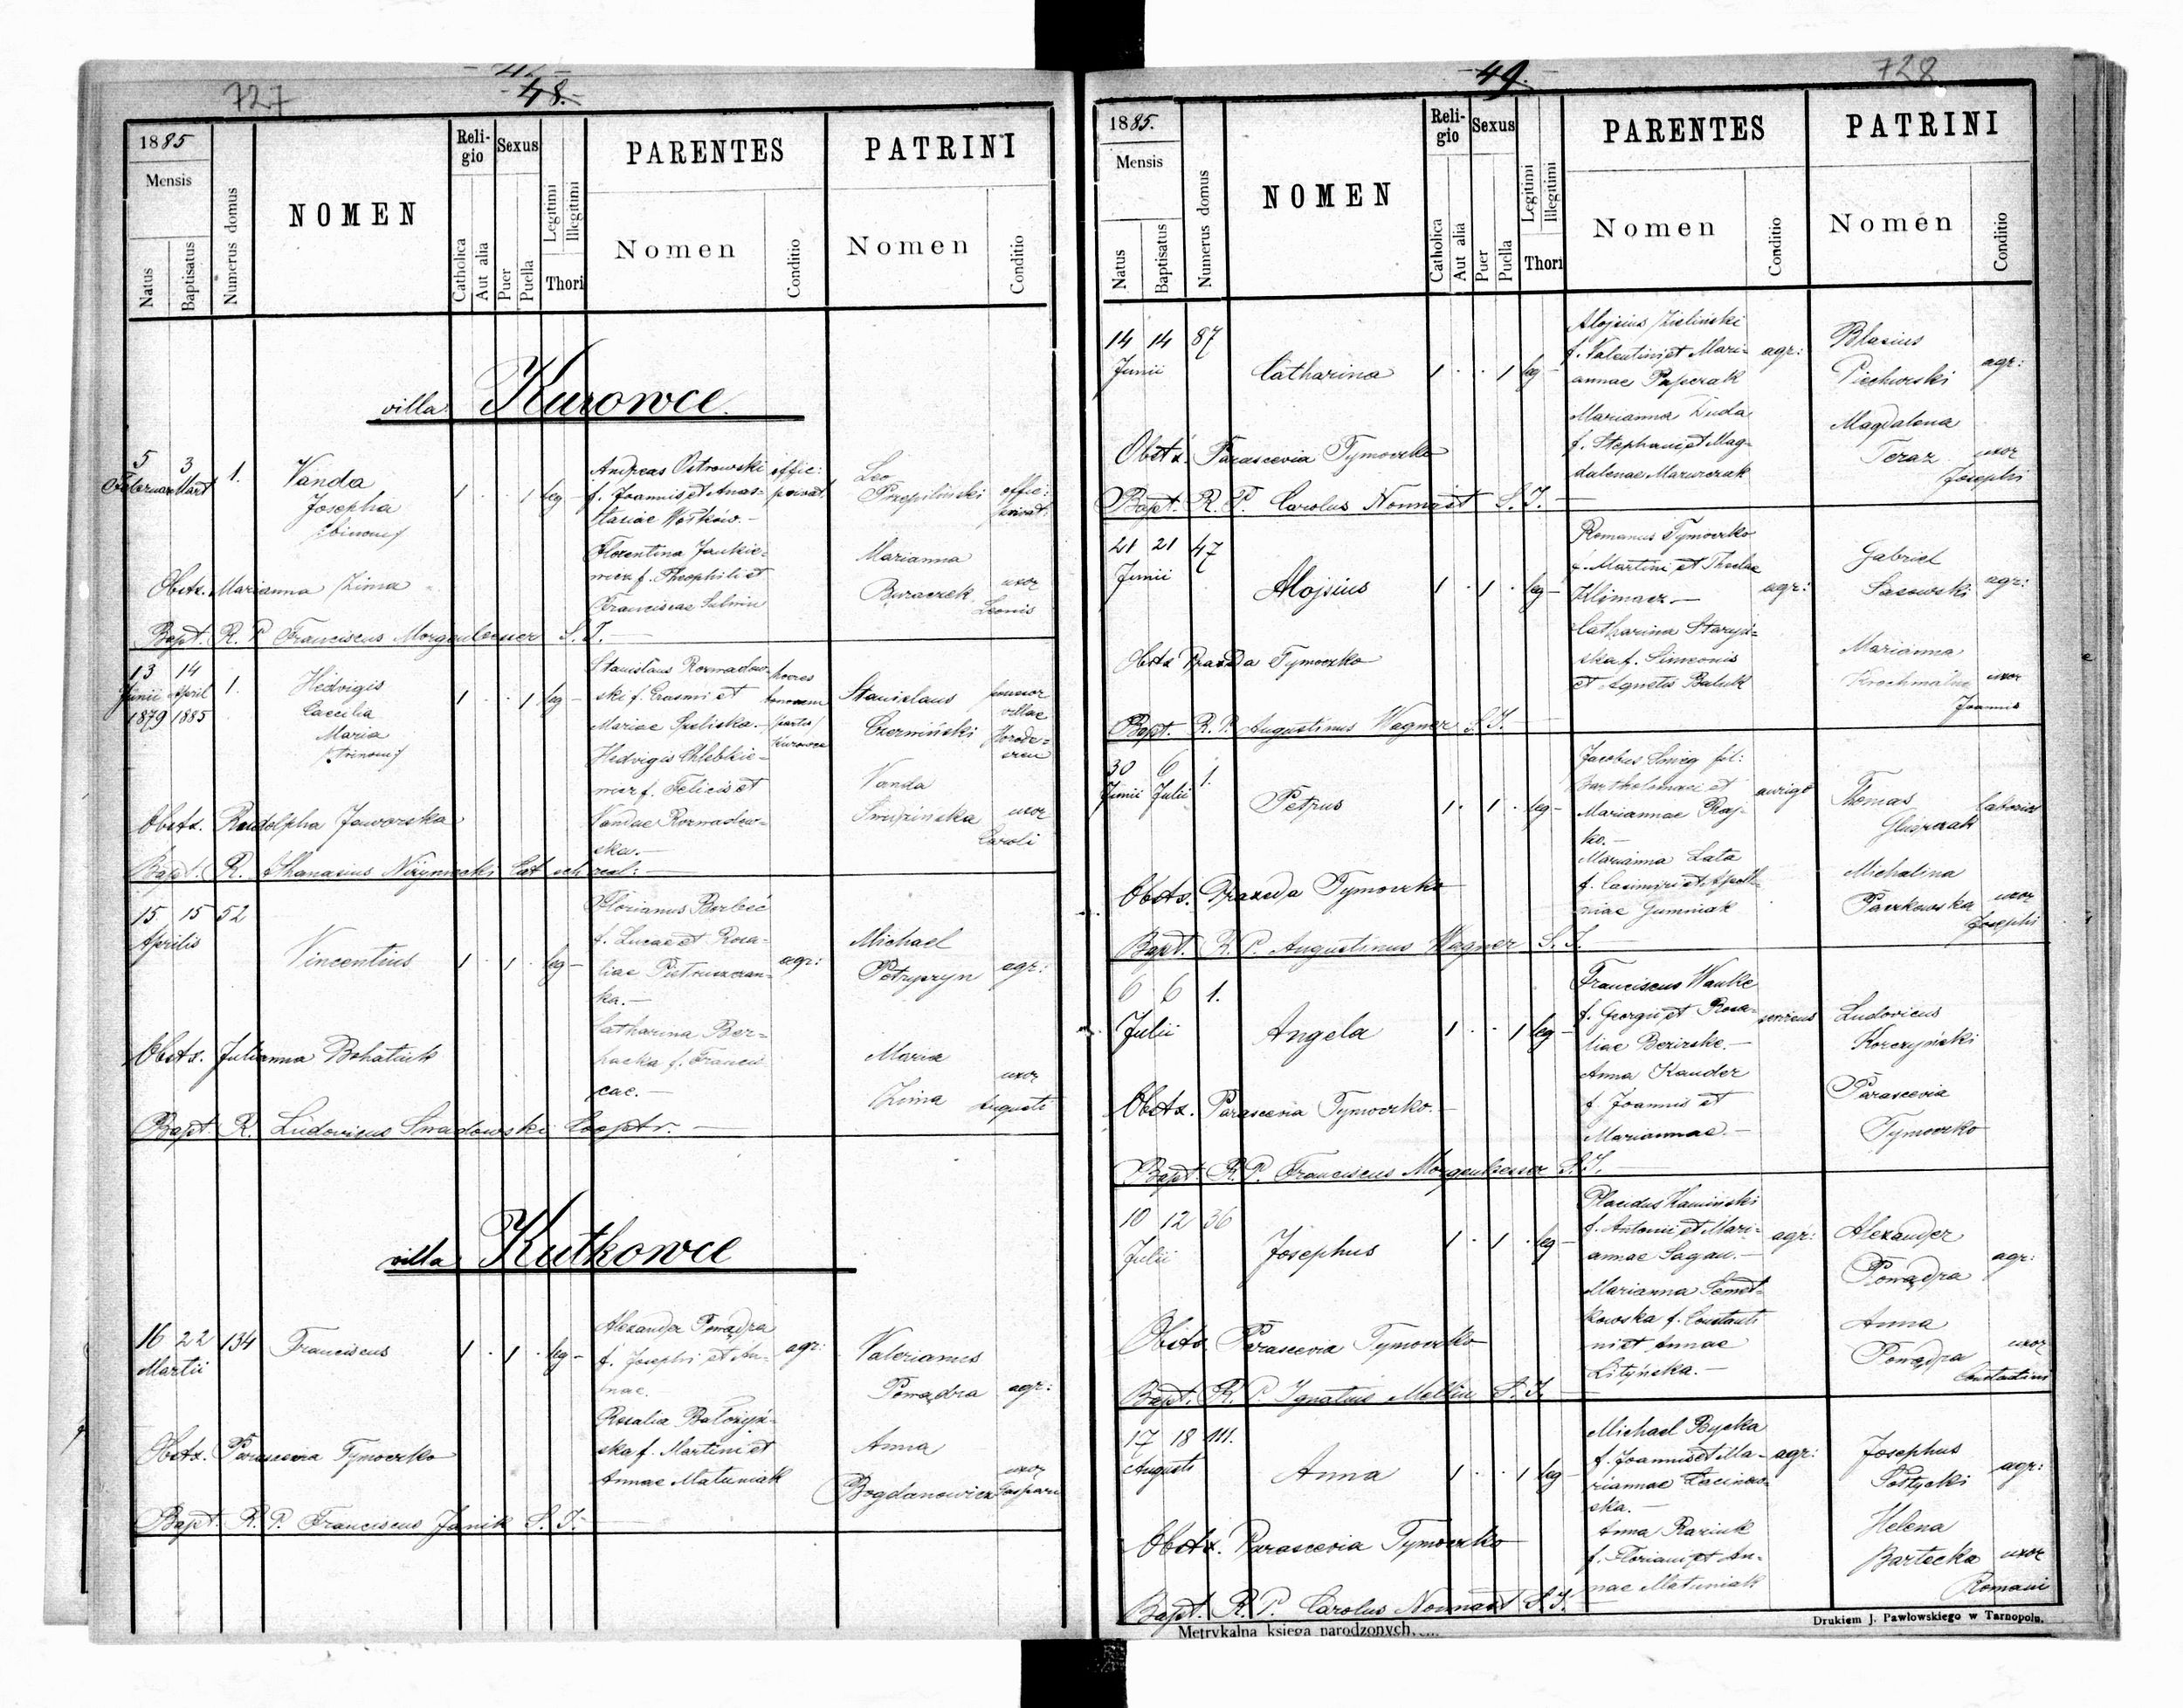 727
48.
1885
Mensis
Natus
Baptisatus
Numerus domus
NOMEN
Religio
Catholica
Aut alia
Sexus
Puer
Puella
Legitimi
Illegitimi
Thori
PARENTES
Nomen
Conditio
PATRINI
Nomen
Conditio
villa Kurowce.
5 Februar
3 Mart
1.
Vanda
Josepha
/binom/
1 . . 1 leg -
Andreas Ostrowski
f. Joannis et Anas-
tasiae Wośków.-
Florentina Jankie-
wicz f. Theophili et
Franciscae Sulmin
offic:
privat.
Leo
Przepiliński
offic:
privat.
Marianna
Buraczek
uxor
Leonis
Obstx. Marianna Zima
Bapt. R. P. Franciscus Morgenbesser S. J.
13 14
Junii April
1879 1885
1.
Hedvigis
Caecilia
Maria
/trinom/
1 . . 1 leg -
Stanislaus Rozwadow-
ski f. Erasmi et
Mariae Suliska.-
Hedvigis Chlebkie-
wicz f. Felicis et
Vandae Rozwadow-
ska.-
haeres
bonorum
/partis/
Kurowce
Stanislaus
Czermiński
villae
Vanda
uxor
Caroli
Obstx. Rudolpha Jaworska
Bapt. R. Athanasius
15 15 52
Aprilis
Vincentius
1 . 1 . leg -
Florianus Berbeć
f. Lucae et Rosa-
liae Pietruszczan-
ka.-
Catharina Ber-
nacka f. Francis
cae.-
agr:
Michael
Petryszyn
agr:
Maria
Zima
uxor
Augusti
Obstx. Julianna Bohatiuk
Bapt. R. Ludovicus Swadowski Cooptr.
villa Kutkowce
16 22 134
Martii
Franciscus
1 . 1 . leg -
Alexander Pomądra
f. Josephi et An-
nae.
Rosalia Bałożyń-
ska f. Martini et
Annae Matuniak
agr:
Valerianus
Pomądra
agr:
Anna
Bogdanowicz
uxor
Gaspari
Obstx. Parascevia Tymoczko
Bapt. R. P. Franciscus Janik S. J.
49.
728
1885.
Mensis
Natus
Baptisatus
Numerus domus
NOMEN
Religio
Catholica
Aut alia
Sexus
Puer
Puella
Legitimi
Illegitimi
Thori
PARENTES
Nomen
Conditio
PATRINI
Nomen
Conditio
14 14 87
Junii
Catharina
1 . . 1 leg -
Alojsius Zieliński
f. Valentini et Mari-
annae Papczak
Marianna Duda
f. Stephani et Mag-
dalenae Mazurczak
agr:
Blasius
Piechurski
agr:
Magdalena
Teraz
uxor
Josephi
Obstx. Parascevia Tymoczko
Bapt. R. P. Carolus Nonnast S. J.
21 21 47
Junii
Alojsius
1 . 1 . leg -
Romanus Tymoczko
f. Martini et Theclae
Klimacz.-
Catharina Staryń-
ska f. Simeonis
et Agnetis Baluk
agr:
Gabriel
Sasowski
agr:
Marianna
Krochmalna
uxor
Joannis
Obstx Praxeda Tymoczko
Bapt. R. P. Augustinus Wagner S. J.
30 6 1.
Junii Julii
Petrus
1 . 1 . leg -
Jacobus Śnieg fil:
Bartholomaei et
Mariannae Raj-
ko.-
Marianna Lata
f. Casimiri et Apollo-
niae Gumniak
auriga
Thomas
Gluszczak
Michalina
Paczkowska
uxor
Josephi
Obstx. Praxeda Tymoczko
Bapt. R. P. Augustinus Wagner S. J.
6 6 1.
Julii
Angela
1 . . 1 leg -
Franciscus Wanke
f. Georgii et Rosa-
liae Bezirske.-
Anna Kauder
f. Joannis et
Mariannae.-
Ludovicus
Korczyński
Parascevia
Tymoczko
Obstx. Parascevia Tymoczko.
Bapt. R. P. Franciscus Morgenbesser S. J.
10 12 36
Julii
Josephus
1 . 1 . leg -
Placidus Kamiński
f. Antonii et Mari-
annae Sagan.-
Marianna Semet-
kowska f. Constanti
ni et Annae
Lityńska.-
agr:
Alexander
Pomądra
agr:
Anna
Pomądra
uxor
Constantini
Obstx. Parascevia Tymoczko
Bapt. R. P. Ignatius Mellin S. J.
17 18 111.
Augusti
Anna
1 . . 1 leg -
Michael Rycka
f. Joannis et Ma-
riannae Zacinow-
ska.-
Anna Raziuk
f. Floriani et An-
nae Matuniak
agr:
Josephus
Potycki
agr:
Helena
Bartecka
uxor
Romani
Obstx. Parascevia Tymoczko
Bapt. R. P. Carolus Nonnast S. J.
Metrykalna księga narodzonych.
Drukiem J. Pawłowskiego w Tarnopolu.